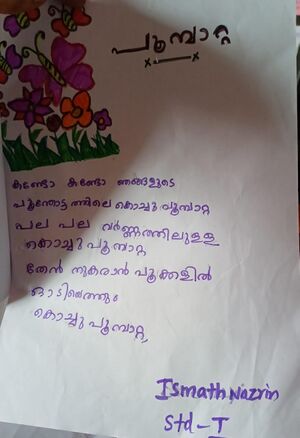 പൂമ്പാറ്റ
കണ്ടോ കണ്ടോ ഞങ്ങളുടെ
പൂന്തോട്ടത്തിലെ കൊച്ചു പൂമ്പാറ്റ
പല പല വർണ്ണത്തിലുള്ള
കൊച്ചു പൂമ്പാറ്റ
തേൻ നുകരാൻ പൂക്കളിൽ
ഓടിയെത്തും
കൊച്ചു പൂമ്പാറ്റ,
Ismath Nazrin
Std - I